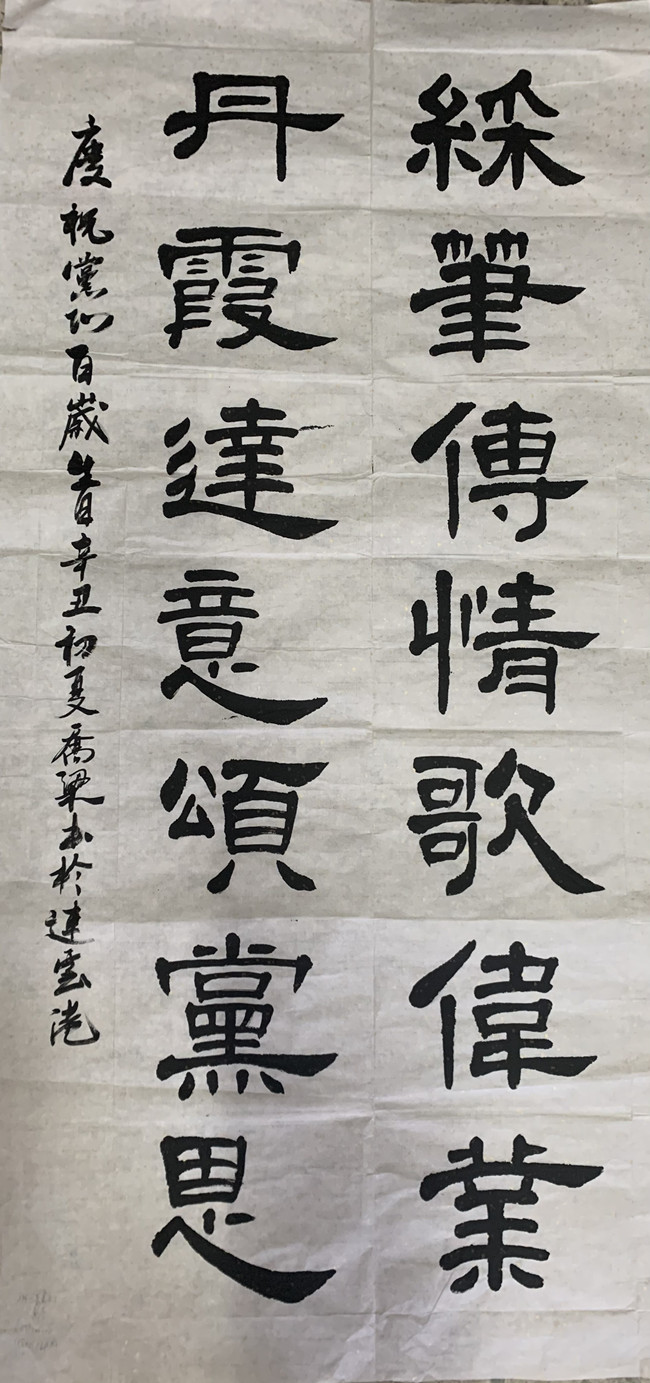 綵筆傳情歌偉業
丹霞達意頌黨恩
慶祝黨的百歲生日辛丑初夏喬梁書於連雲港